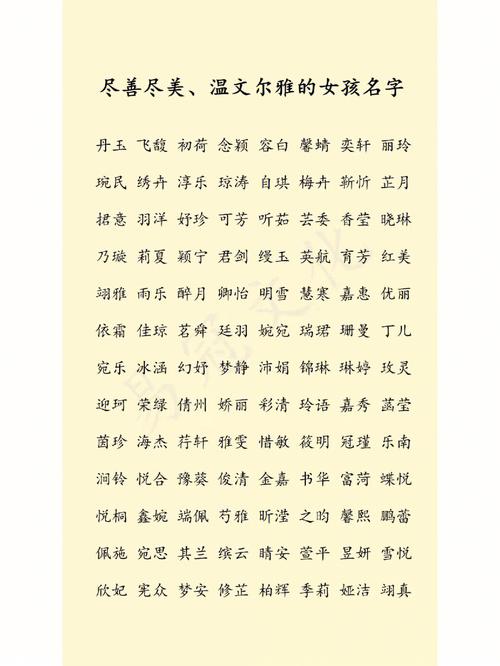 尽善尽美、温文尔雅的女孩名字
丹玉 飞馥 初荷 念颖 容白 馨蜻 奕轩 丽玲
琬民 绣卉 淳乐 琼涛 自琪 梅卉 靳忻 芷月
珺意 羽洋 妤珍 可芳 听茹 芸委 香莹 晓琳
乃璇 莉夏 颖宁 君剑 缦玉 英航 育芳 红美
翊雅 雨乐 醉月 卿怡 明雪 慧寒 嘉惠 优丽
依霜 佳琼 茗舜 廷羽 婉宛 瑞珺 珊曼 丁儿
宛乐 冰涵 幻妤 梦静 沛娟 锦琳 琳婷 玫灵
迎珂 荣绿 倩州 娇丽 彩清 玲语 嘉秀 菡莹
茵珍 海杰 荇轩 雅雯 惜敏 筱明 冠瑾 乐南
涧铃 悦合 豫葵 俊清 金嘉 书华 富菏 蝶悦
悦桐 鑫婉 端佩 芍雅 昕滢 之昀 馨熙 鹏蕾
佩施 宛思 其兰 缤云 晴安 萱平 昱妍 雪悦
欣妃 宪众 梦安 修芷 柏辉 季莉 娅洁 翊真
易冠文化